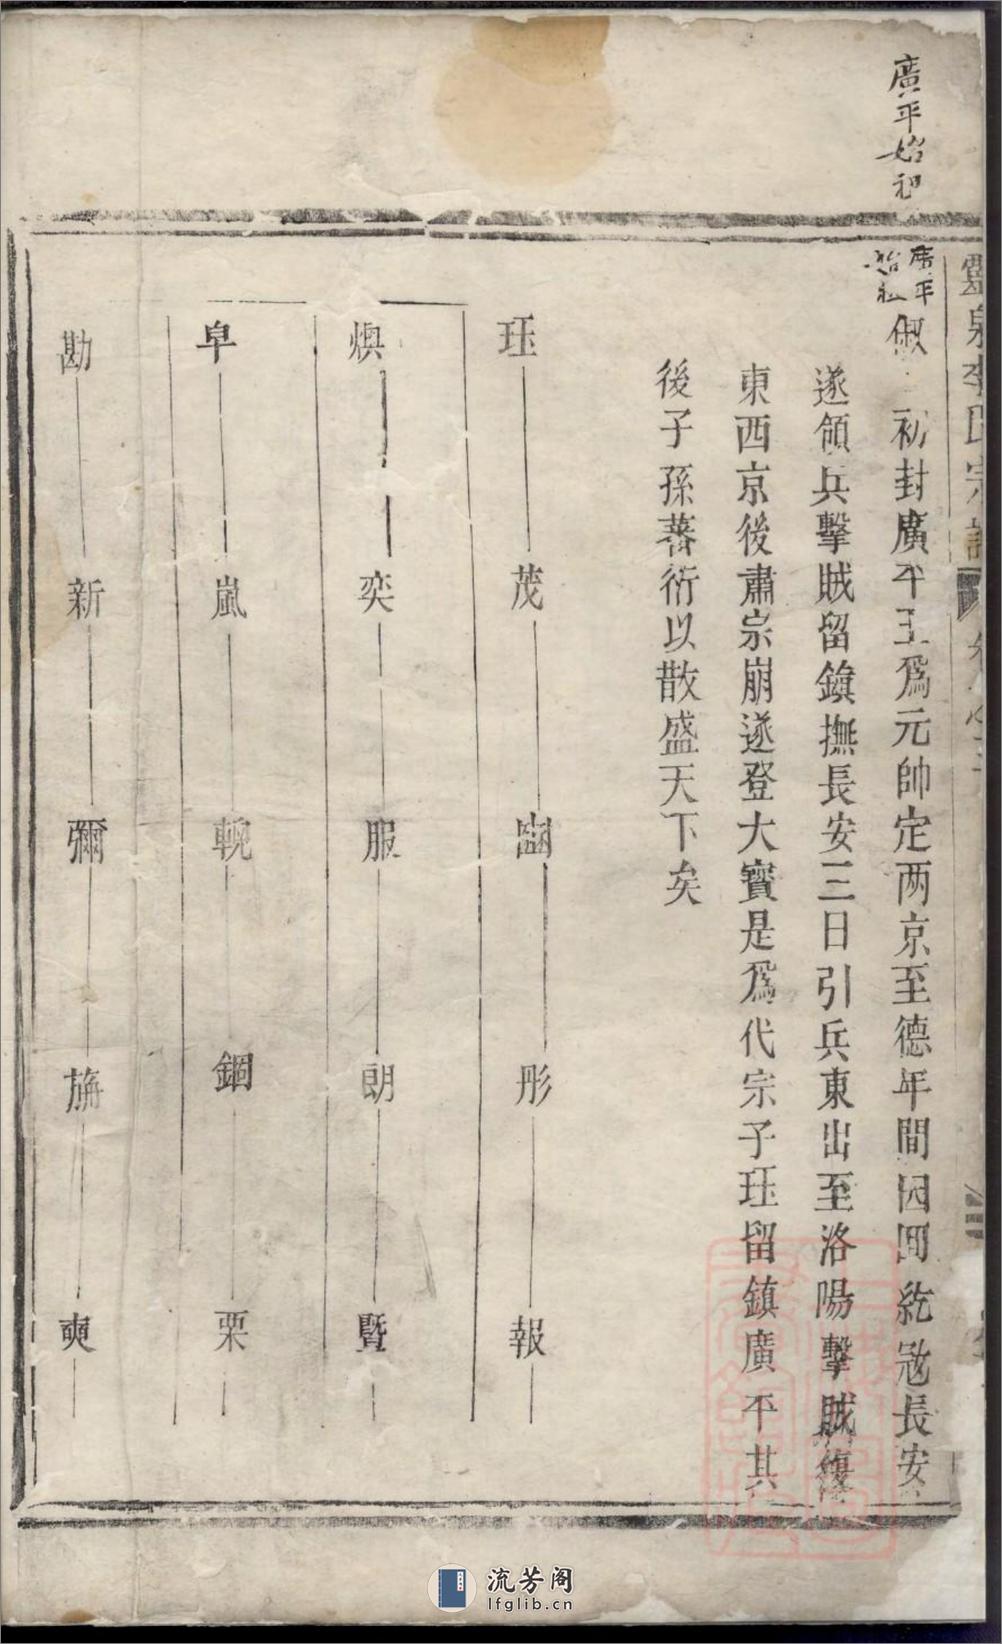 廣平始祖
靈泉李氏宗譜
廣平
始祖
俶初封廣平王爲元帥定两京至德年間因回紇寇長安
遂領兵擊賊留鎮撫長安三日引兵東出至洛陽擊賊復
東西京後肅宗崩遂登大寳是爲代宗子珏留鎮廣平其
後子孫蕃衍以散盛天下矣
珏 茂 彤 報
燠 奕 服 朗 暨
阜 嵐 輗 錮 栗
勘 新 彌 旃 奭
流芳阁
lfglib.cn